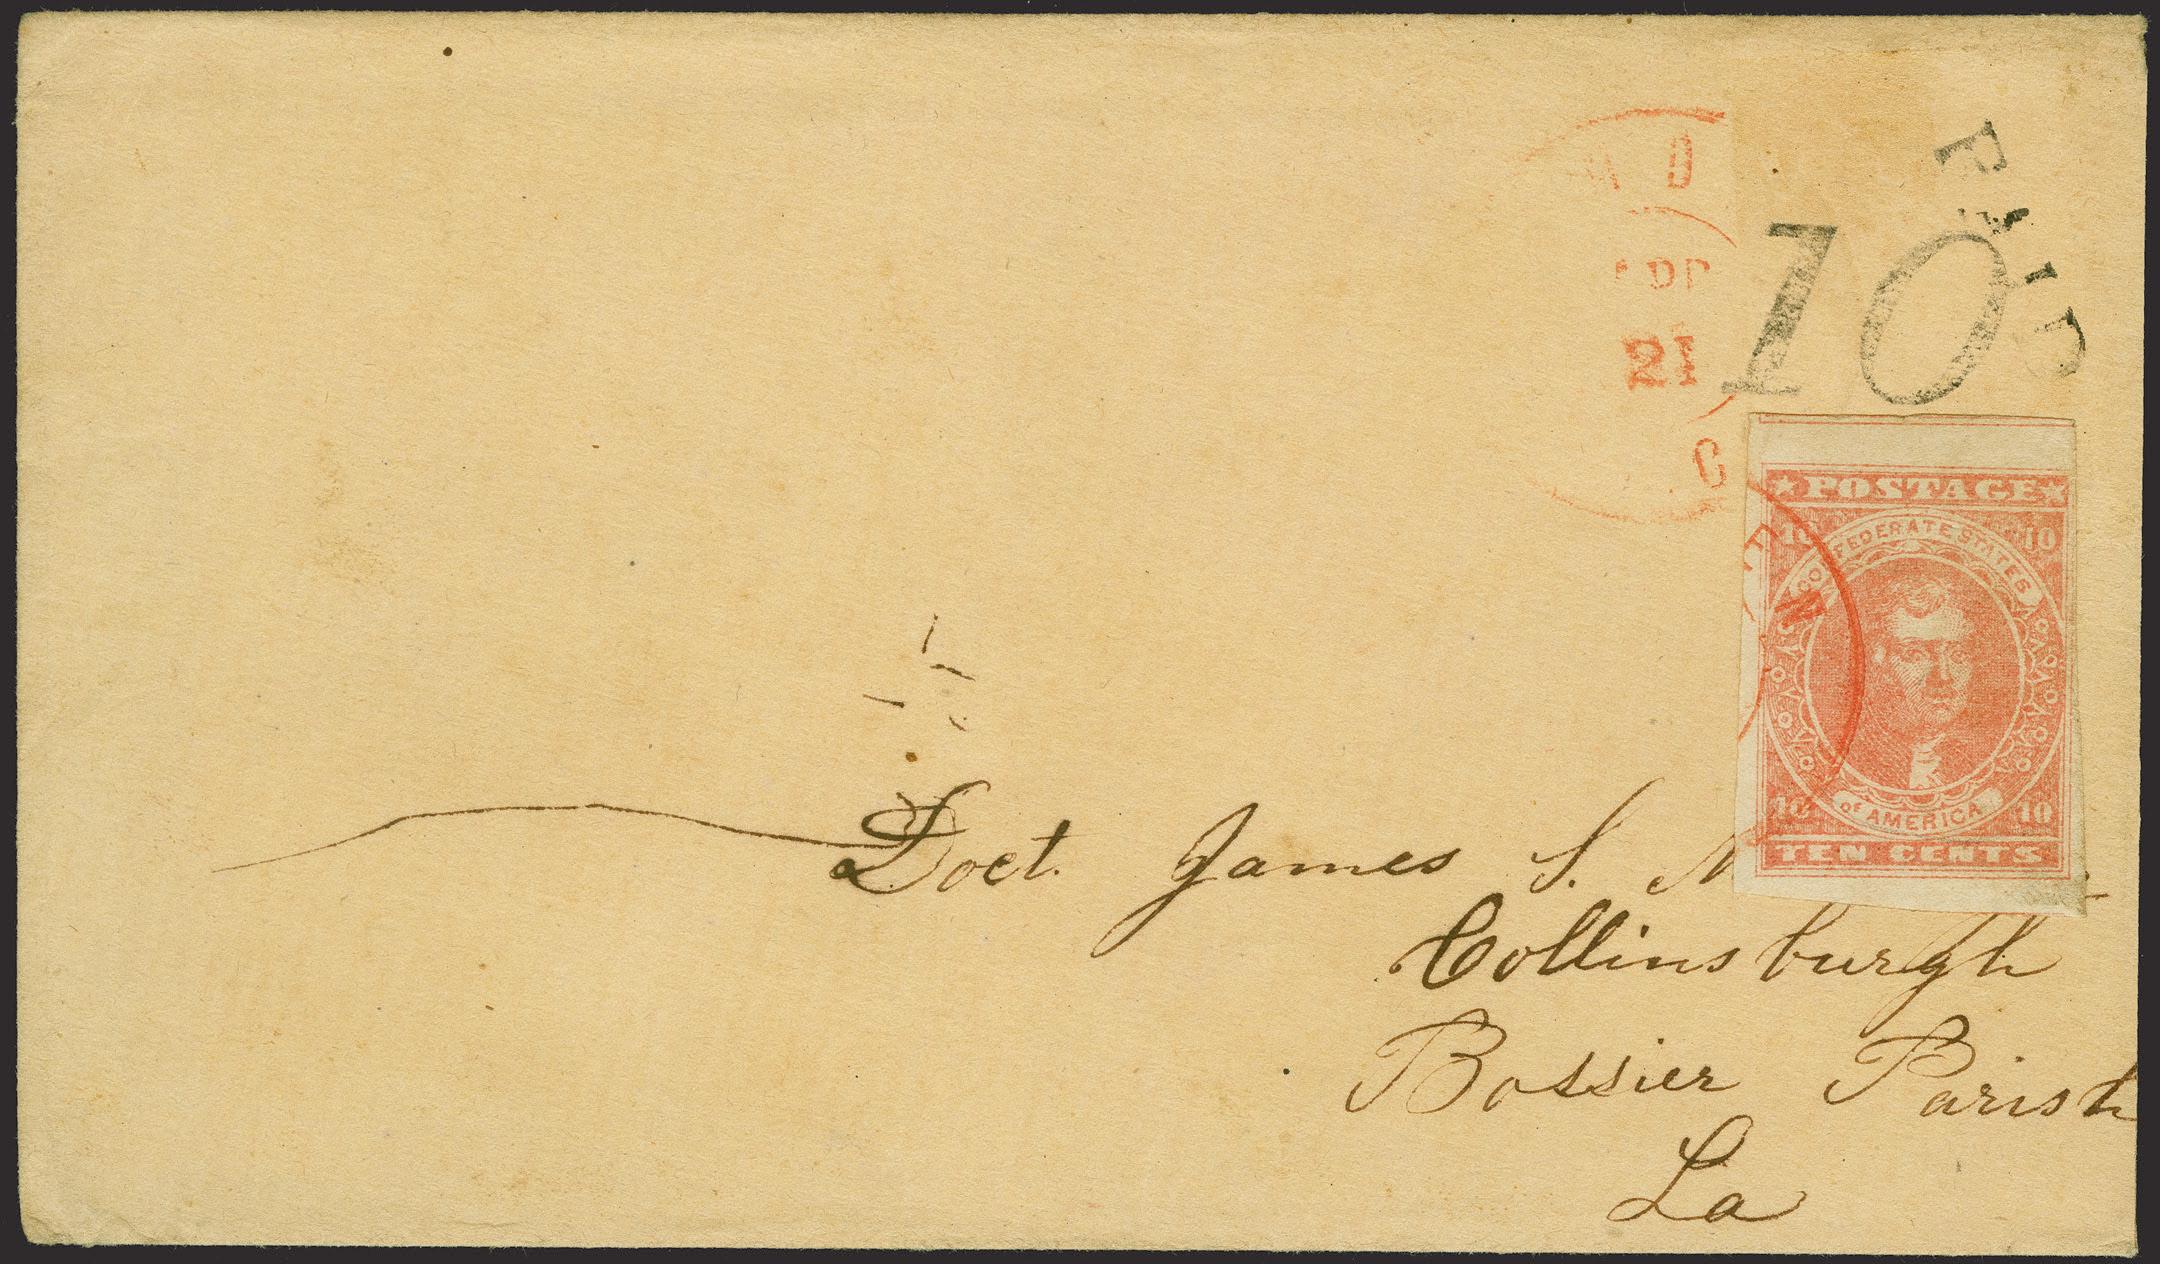 PAID
10
21
C
POSTAGE
10 10
CONFEDERATE STATES
OF AMERICA
10 10
TEN CENTS
Doct. James S.
Collinsburgh
Bossier Parish
La